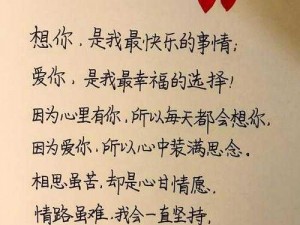 想你，是我最快乐的事情；
爱你，是我最幸福的选择！
因为心里有你，所以每天都会想你，
因为爱你，所以心中装满思念。
相思虽苦，却是心甘情愿。
情路虽难，我会一直坚持，